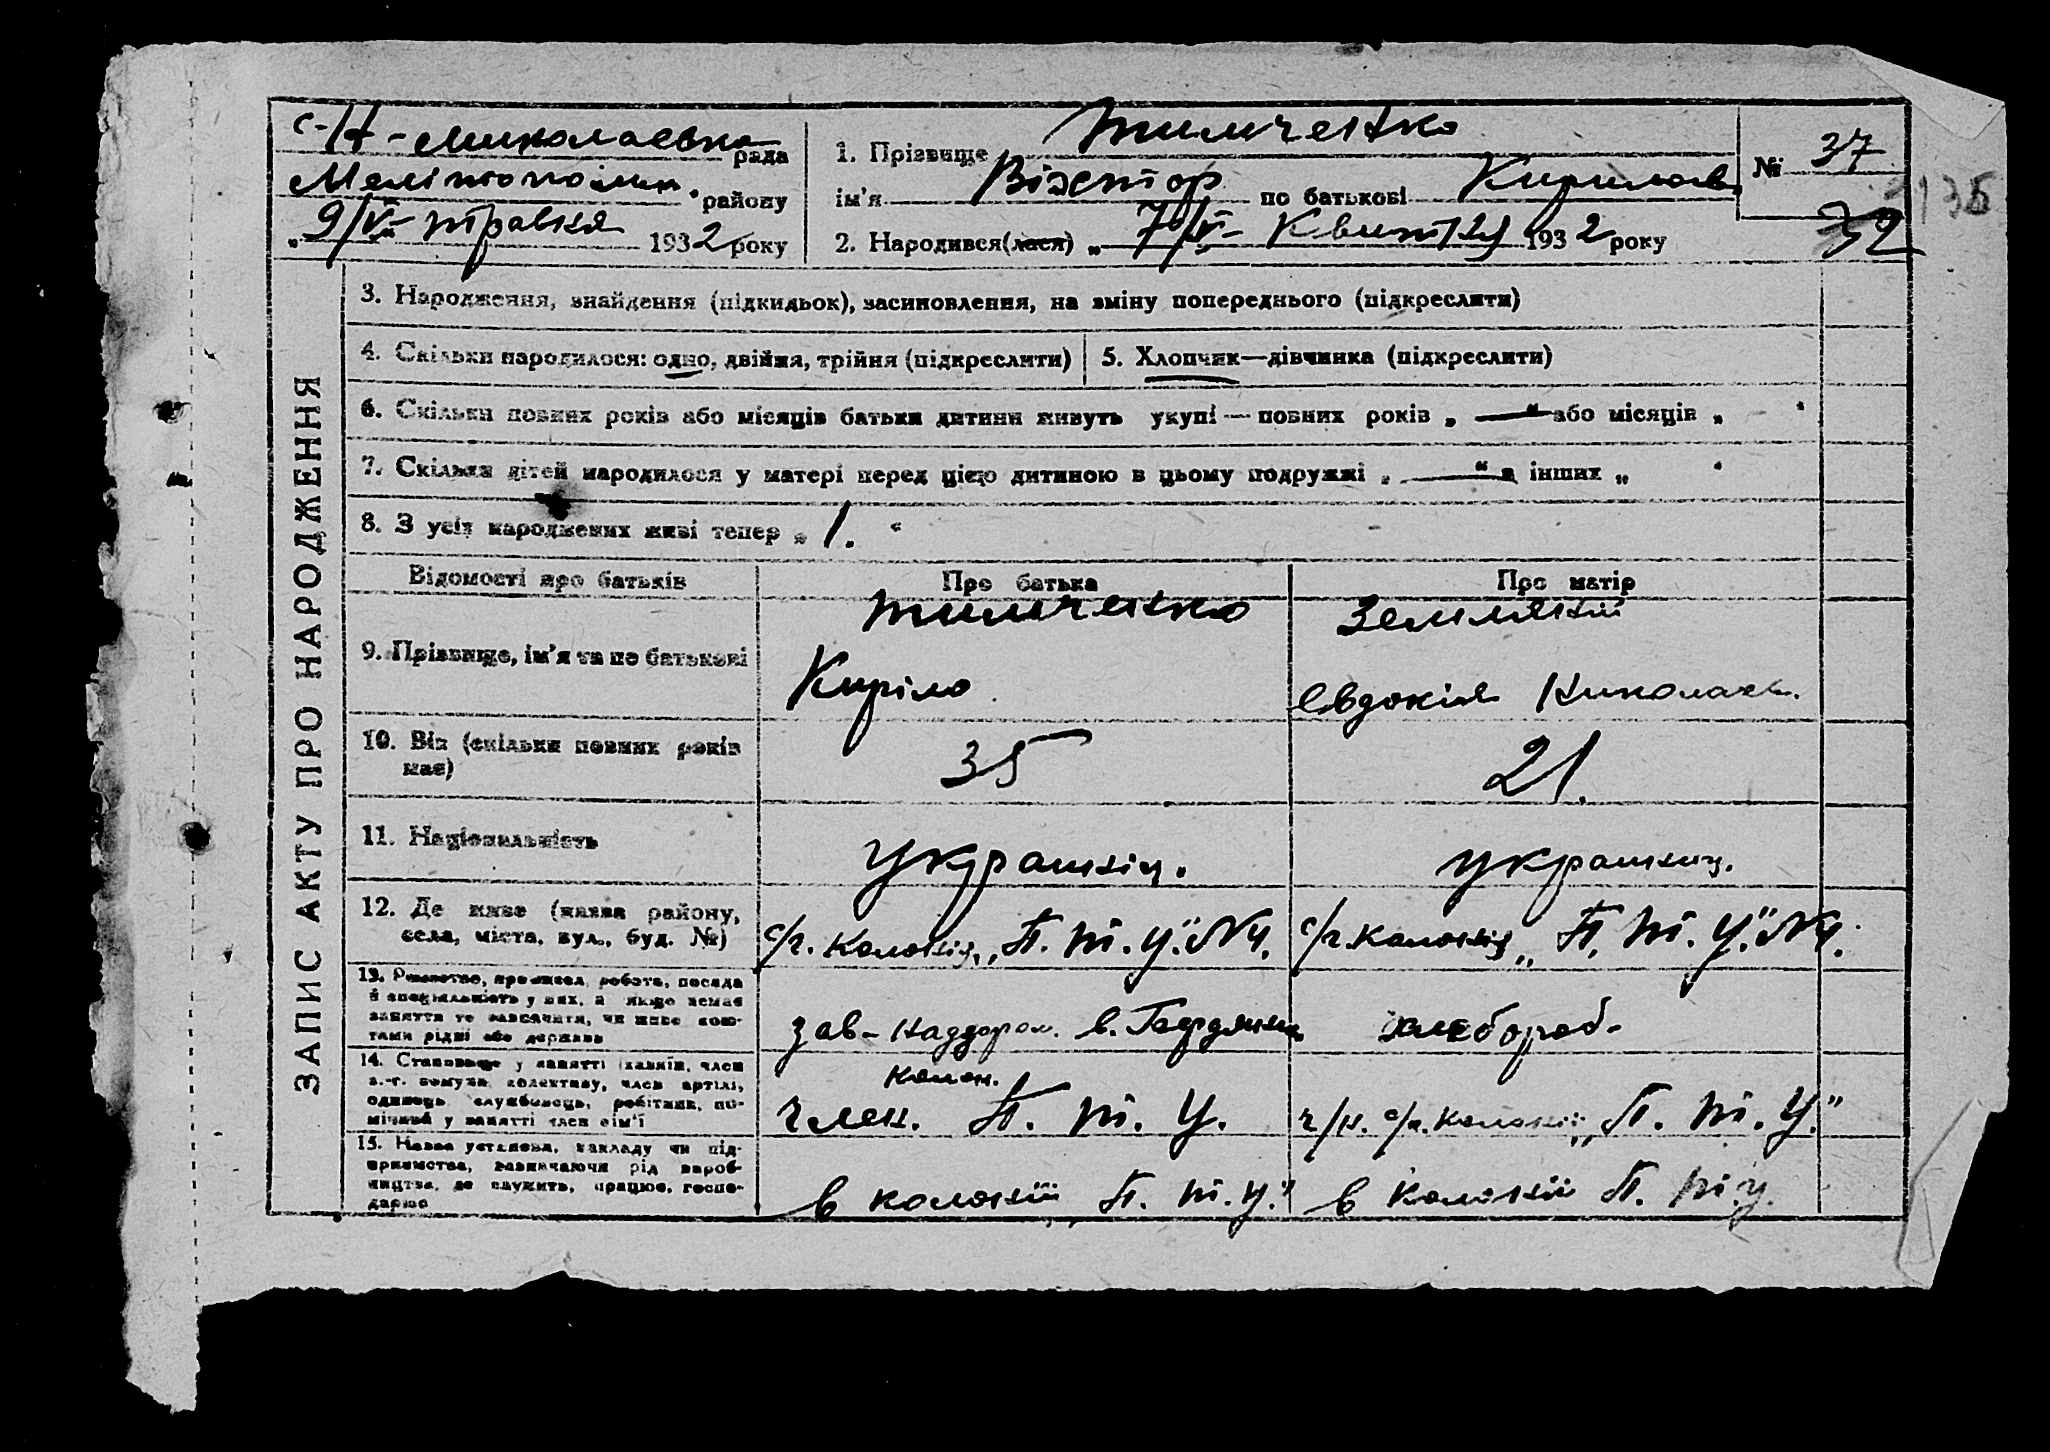 с-Н-Миколаевка рада
Мелітополськ. району
„9/V- травня 1932 року
1. Прізвище Тимченко
ім'я Віктор по батькові Кирилов.
2. Народився(лася) „7/V- Квітня 1932 року
№ 37
32
135
ЗАПИС АКТУ ПРО НАРОДЖЕННЯ
3. Народження, знайдення (підкидьок), засиновлення, на зміну попереднього (підкреслити)
4. Скільки народилося: одно, двійня, трійня (підкреслити)
5. Хлопчик—дівчинка (підкреслити)
6. Скільки повних років або місяців батьки дитини живуть укупі — повних років „ — “ або місяців „ “
7. Скільки дітей народилося у матері перед цією дитиною в цьому подружжі „ — “ в інших „ “
8. З усіх народжених живі тепер „ 1. “
Відомості про батьків Про батька Про матір
9. Прізвище, ім'я та по батькові
Тимченко
Киріло
Землякій
Евдокія Николаев.
10. Вік (скільки повних років має)
35
21.
11. Національність
Українц.
Українц.
12. Де живе (назва району, села, міста, вул., буд. №)
с/г. Колонія „П. Т. У." №4.
с/г. Колонія „П. Т. У." №4.
13. Ремество, промисел, робота, посада
й спеціяльність у них, а якщо немає
заняття то зазначити, чи живе кош-
тами рідні або держави
зав-
хлебороб-
14. Становище у занятті (хазяїн, член
с.-г. комуни, колективу, член артілі,
одинець, службовець, робітник, по-
мічний у занятті член сім'ї
колон.
член. П. Т. У.
ч/н. с/г. Колонії „П. Т. У."
15. Назва установи, закладу чи під-
приємства, зазначаючи рід вироб-
ництва, де служить, працює, госпо-
дарює
в колонії „П. Т. У."
в колонії П. Т. У.